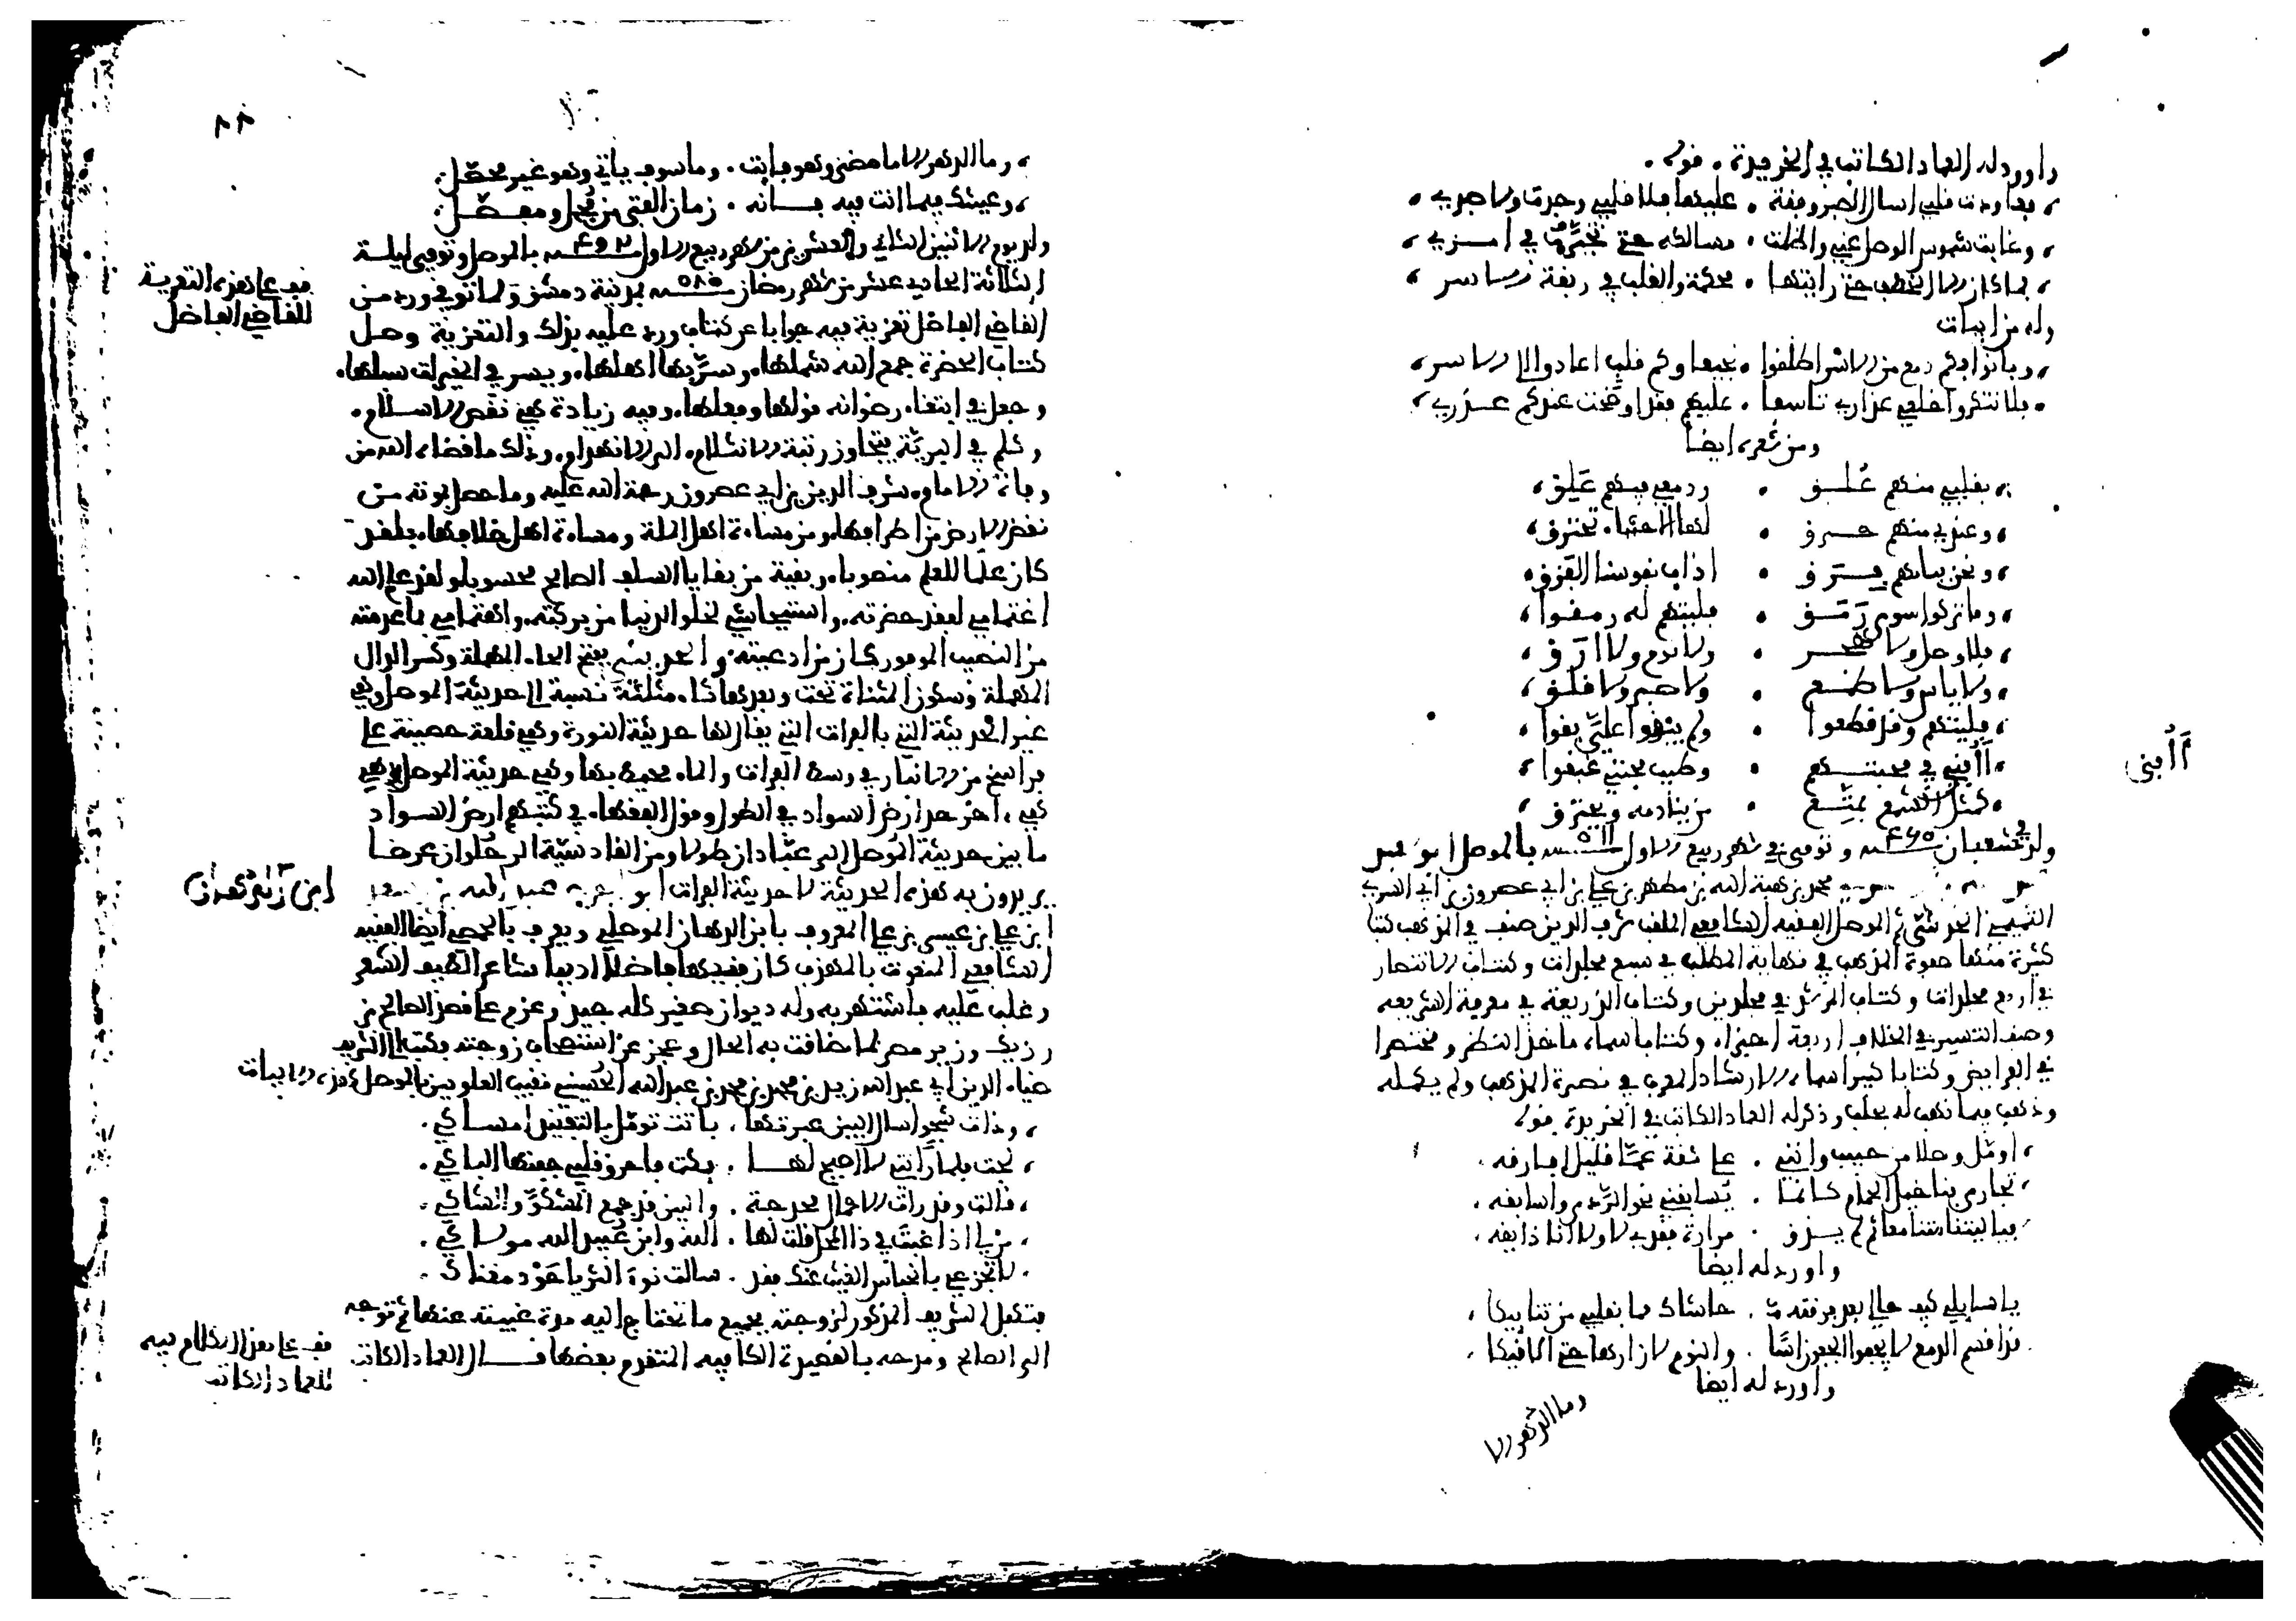 واورد له العماد الكاتب في الخريدة . قوله .
، فعاودت قلبي اسال الصبر وقفة . عليها فلا قلبي وجدت ولا صبري ،
، وغابت شموس الوصل عني واظلمت . مسالكه حتى تحيّرت في امري ،
، فما كان الا الخطف حتى رايتها . محكمة والقلب في ربقة الاسر ،
وله من ابيات
، وبانوا فكم دمع من الاسر اطلقوا . نجيعا وكم قلب اعادوا الى الاسر ،
. فلا تنكروا خلعي عذاري تاسفا . عليهم فقد اوضحت عندكم عذري ،
ومن شعره ايضا
، بقلبي منهم عُلَق . ودمعي فيهم عَلِق ،
، وعندي منهم حرق . لها الاحشاء تحترق ،
، ونحن ببابهم فرق . اذاب نفوسنا الفرق ،
، وما تركوا سوى رَمَق . فليتهم له رمقوا ،
، فلا وصل ولا هجر . ولا نوم ولا اَرَق ،
، ولا ياس ولا طمع . ولا صبر ولا قلق ،
، فليتهم وقد قطعوا . ولم يبقوا عليّ بقوا ،
، أأفنى في محبتهم . وطيب محبتي عبقوا ،
، كمثل الشمع يمتع . من ينادمه ويحترق ،
أأفنى
ولد في شعبان ٤٦٥ وتوفي في شهر ربيع الاول ٥١١ بالموصل ابو سعد
محمد بن هبة الله بن مطهر بن علي بن ابي عصرون بن ابي السري
التميمي الحديثي ثم الموصلي الفقيه الشافعي الملقب شرف الدين صنف في المذهب كتبا
كثيرة منها صفوة المذهب في نهاية المطلب في سبع مجلدات وكتاب الانتصار
في اربع مجلدات وكتاب المرشد في مجلدين وكتاب الذريعة في معرفة الشريعه
وصنف التيسير في الخلاف اربعة اجزاء وكتابا سماه ماخذ النظر ومختصرا
في الفرايض وكتابا كبيرا سماه الارشاد المعرب في نصرة المذهب ولم يكمله
وذهب فيما نهب له بحلب وذكره العماد الكاتب في الخريدة بقوله
، اومّل وصلا من حبيب وانني . على ثقة عمّا قليل افارقه .
، تجارى بنا خيل الحمام كانما . يسابقني نحو الرّدى واسابقه .
، فيا ليتنا متنا معا ثم لم يذق . مرارة فقدي لا ولا انا ذايقه .
واورد له ايضا
يا سايلي كيف حالي بعد فرقته . حاشاك مما بقلبي من تنائيكا ،
. قد اقسم الدمع لا يجفو الجفون اسًا . والنوم لا زارها حتى الاقيكا .
واورد له ايضا
وما الدهر الا
، وما الدهر الا ما مضى وهو فايت . وما سوف ياتي وهو غير محصّل .
، وعيشك فيما انت فيه فانه . زمان الفتى من مجمل ومفصّل .
ولد يوم الاثنين الثاني والعشرين من شهر ربيع الاول ٤٩٢ بالموصل وتوفي ليلة
الثلاثة الحادي عشر من شهر رمضان ٥٨٥ بمدينة دمشق ولما توفي ورد من
القاضي الفاضل تعزية فيه جوابا عن كتاب ورد عليه بذلك والتعزية وصل
كتاب الحضرة جمع الله شملها، وسرّ بها اهلها، ويسر في الخيرات سبلها،
وجعل في ابتغاء رضوانه قولها وفعلها، وفيه زيادة هي نقص الاسلام.
وثلم في البريّة يتجاوز رتبة الانثلام، الى الانهدام، وذلك ما قضاه الله من
وفاة الامام شرف الدين بن ابي عصرون رحمة الله عليه وما حصل بموته من
نقص الارض من اطرافها، ومن مساءة اهل الملة ومسرة اهل خلافها، فلقد
كان علَمًا للعلم منصوبا، وبقية من بقايا السلف الصالح محسوبا، ولقد علم الله
اغتمامي لفقد حضرته، واستيحاشي لخلو الدنيا من بركته، واهتمامي بما عدمته
من النصيب الموفور كان من ادعيته، والحديثي بفتح الحاء المهملة وكسر الدال
المهملة وسكون المثناة تحت وبعدها ثاء مثلثة نسبة الى حديثة الموصل وهي
غير الحديثة التي بالفرات التي يقال لها حديثة النورة وهي قلعة حصينة على
فراسخ من الانبار في وسط الفرات والماء محيط بها وهي حديثة الموصل
هي ، اخر حد ارض السواد في الطول وقول الفقهاء في كتبهم ارض السواد
ما بين حديثة الموصل الى عبّادان طولا ومن القادسيّة الى حُلوان عرضا
يريدون به هذه الحديثة لا حديثة الفرات ابو الفرج عبد الله بن اسعد
ابن علي بن عيسى بن علي المعروف بابن الدهان الموصلي ويعرف بالحمصي ايضا الفقيه
الشافعي المنعوت بالمهذب كان فقيها فاضلا اديبا شاعرا لطيف الشعر
وغلب عليه فاشتهر به وله ديوان صغير كله جيد وعزم على قصد الصالح بن
رزيك وزير مصر لما ضاقت به الحال وعجز عن استصحاب زوجته فكتب الى الشريف
ضياء الدين ابي عبد الله زيد بن محمد بن محمد بن عبيد الله الحُسيني نقيب العلويين بالموصل هذه الابيات
، وذات شجو اسال البين عبرتها . باتت تومّل بالتفنيد امساكي .
، لجت فلما رأتني لا اصيخ لها . بكت فاحرق قلبي جفنها الباكي .
، قالت وقد رات الاحمال محدجة . والبين قد جمع المشكوّ والشاكي .
، من لي اذا غبت في ذا المحل قلت لها . الله وابن عبيد الله مولاكي .
. لا تجزعي بانحباس الغيث عنك فقد . سالت نوء الثريا جَوْد مغناك .
فتكفل الشريف المذكور لزوجته بجميع ما تحتاج اليه مدة غيبته عنها ثم توجه
الى الصالح ومدحه بالقصيدة الكافيه المتقدم بعضها قال العماد الكاتب
٨٨
قف على هذه التعزية
للقاضي الفاضل
ابن الدهان
قف على هذا الكلام فيه
للعماد الكاتب